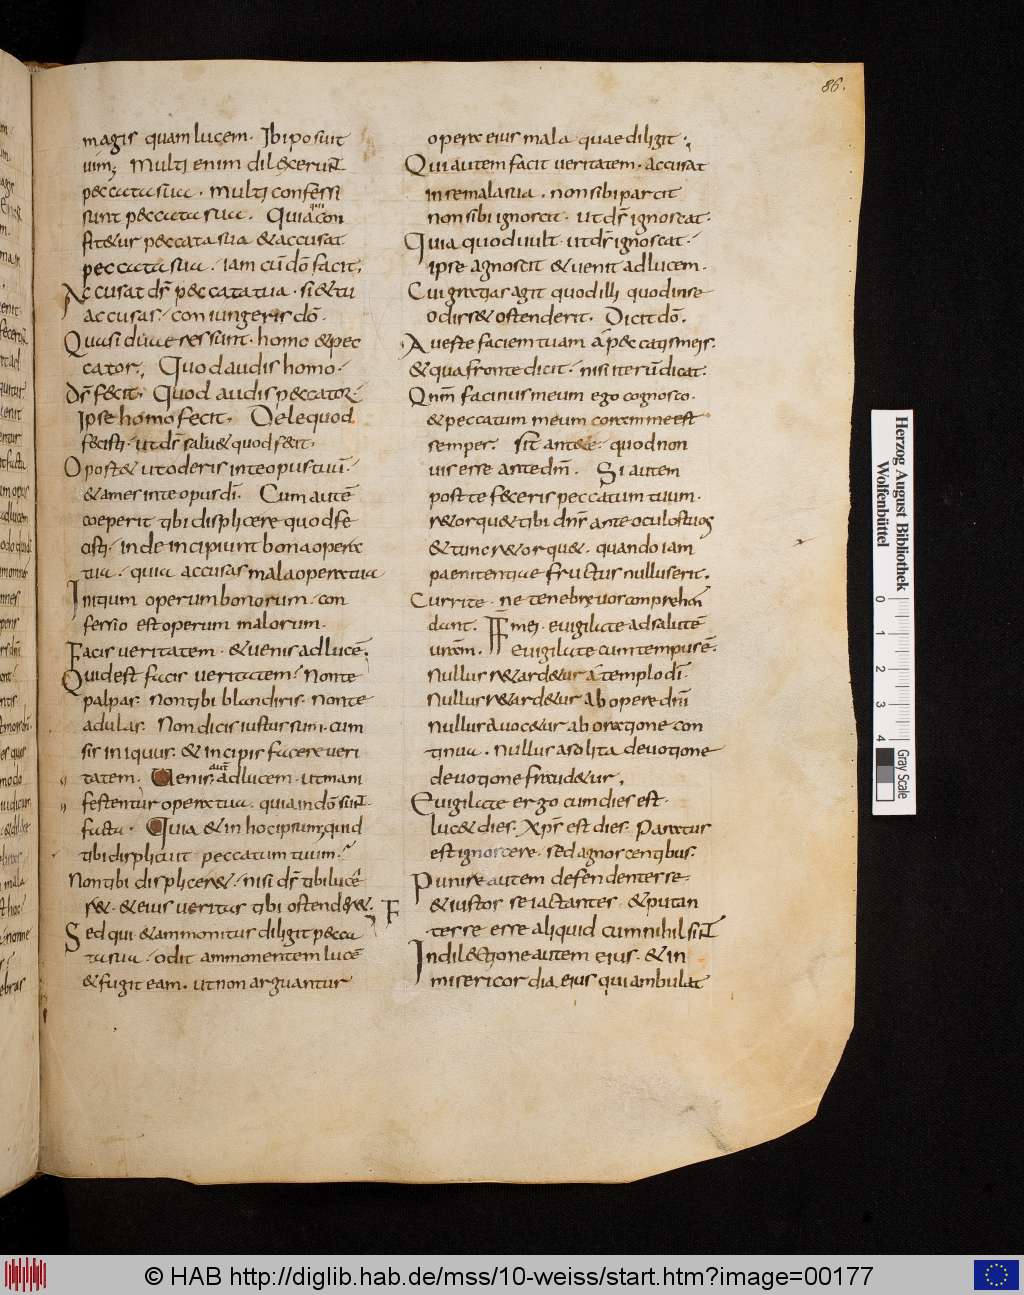 86.
magis quam lucem. Ibi posuit
uim; Multi enim dilexerunt
peccata sua. multi confessi
sunt peccata sua. Quia qui con
fit&ur peccata sua & accusat
peccata sua. iam cū dō facit;
Accusat ds̄ peccata tua. si & tu
accusas. coniungeris dō.
Quasi duae res sunt. homo & pec
cator. Quod audis homo.
ds̄ fecit. Quod audis peccator.
Ipse homo fecit. Dele quod
fecisti. ut ds̄ salu& quod fecit.
Oport& ut oderis in te opus tuū.
& ames in te opus dī. Cum autē
coeperit tibi displicere quod fe
cisti. inde incipiunt bona opera
tua. quia accusas mala opera tua
Initium operum bonorum. con
fessio est operum malorum.
Facis ueritatem. & uenis ad lucē.
Quid est facis ueritatem? Non te
palpas. non tibi blandiris. non te
adulas. Non dicis iustus sum. cum
sis iniquus. & incipis facere ueri
tatem. Uenis aut ad lucem. ut mani
festentur opera tua. quia in dō sunt
facta. Quia & in hoc ipsum quid
tibi displicuit peccatum tuum.
Non tibi displicer&. nisi ds̄ tibi lucer
&. & eius ueritas tibi ostender&.
Sed qui & ammonitus diligit pecca
ta sua. odit ammonentem lucē
& fugit eam. ut non arguantur
opera eius mala quae diligit.
Qui autem facit ueritatem. accusat
in se mala sua. non sibi parcit
non sibi ignoscit. ut ds̄ ignoscat.
Quia quod uult ut ds̄ ignoscat.
ipse agnoscit & uenit ad lucem.
Cui gratias agit quod illi quod in se
odiss& ostenderit. Dicit dō.
Auerte faciem tuam á peccatis meis.
& qua fronte dicit. nisi iterū dicat.
Qnm̄ facinus meum ego cognosco.
& peccatum meum coram me est
semper. Sit ante te. quod non
uis esse ante dm̄. Si autem
post te feceris peccatum tuum.
r&orqu& tibi dns̄ ante oculos tuos
& tunc r&orqu&. quando iam
paenitentiae fructus nullus erit.
Currite. ne tenebrae uos comprehen
dant. FF mei. euigilate ad salutē
uram. Euigilate cum tempus ē.
Nullus r&ard&ur á templo dī.
Nullus r&ard&ur ab opere dnī
Nullus áuoc&ur ab oratione con
tinua. Nullus a solita deuotione
deuotione fraud&ur.
Euigilate ergo cum dies est.
luc& dies. Xp̄s est dies. Paratus
est ignoscere. sed agnoscentibus.
Punire autem defendentes se.
& iustos se iactantes. & putan
tes se esse aliquid cum nihil sint
In dilectione autem eius. & in
misericordia eius qui ambulat
Herzog August Bibliothek
Wolfenbüttel
0 1 2 3 4
Gray Scale
© HAB http://diglib.hab.de/mss/10-weiss/start.htm?image=00177